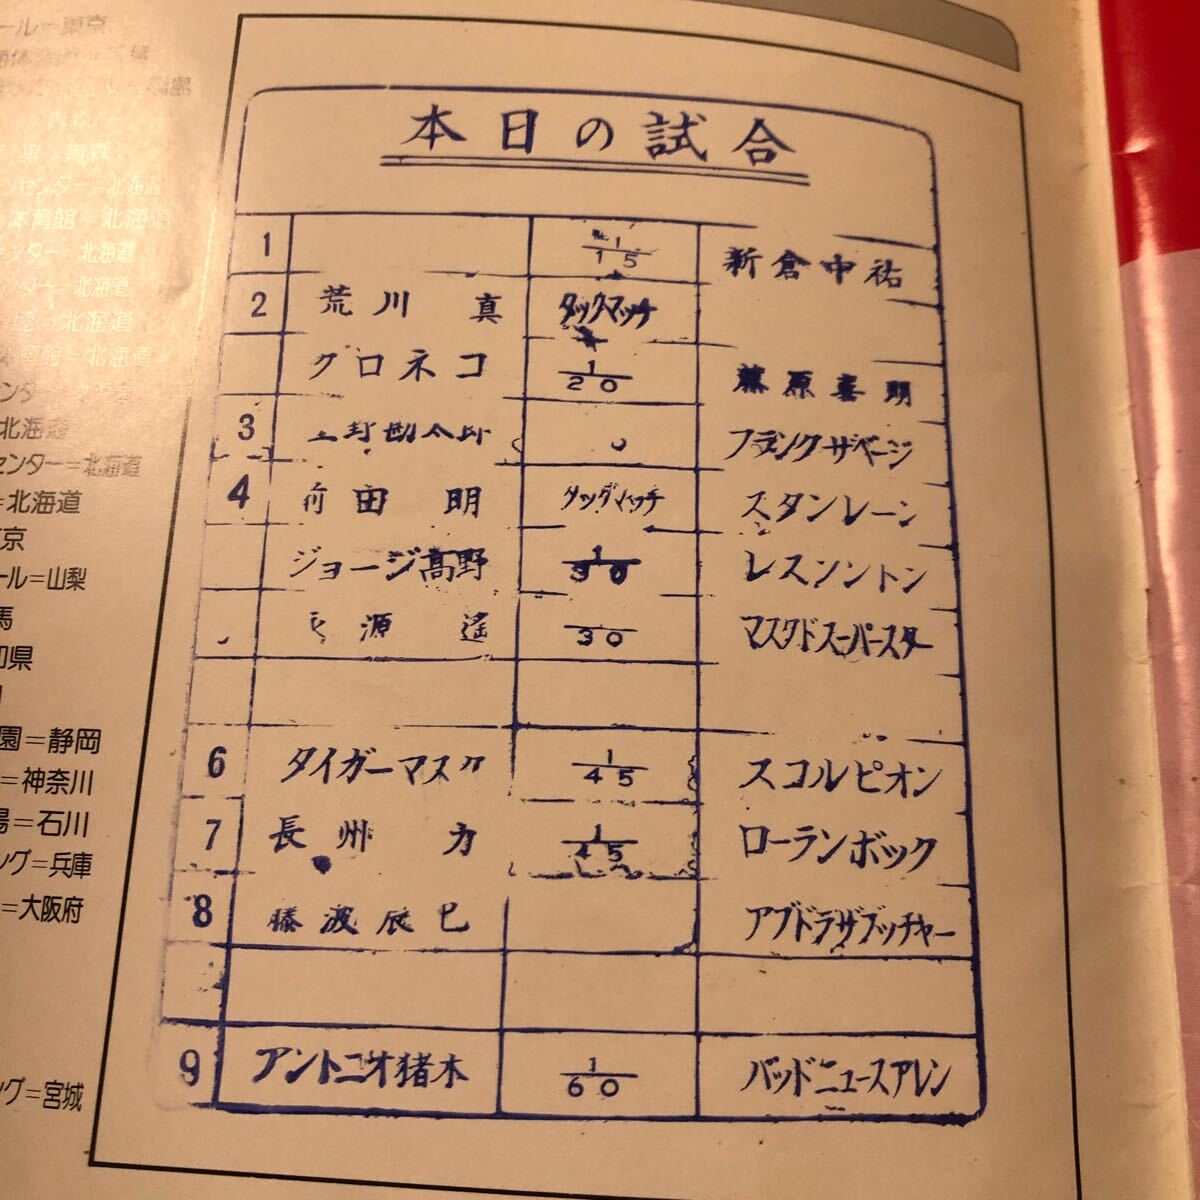 ール=東京
=北海道
体育館=北海道
ンター=北海道
ンター=北海道
=北海道
=北海道
=北海道
北海道
センター=北海道
=北海道
京
ール=山梨
馬
知県
園=静岡
=神奈川
場=石川
ング=兵庫
=大阪府
ング=宮城
本日の試合
1 1/15 新倉史祐
2 荒川真 タッグマッチ
クロネコ 1/20 藤原喜明
3 上野勘太郎 フランクザベージ
4 前田明 タッグマッチ スタンレーン
ジョージ高野 1/30 レスソントン
源遙 /30 マスクドスーパースター
6 タイガーマスク 1/45 スコルピオン
7 長州力 1/45 ローランボック
8 藤波辰巳 アブドラザブッチャー
9 アントニオ猪木 1/60 バッドニュースアレン